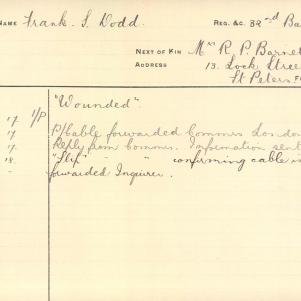 NAME Frank. S. Dodd. REG. &C. 32nd Ba
NEXT OF KIN Mrs R. P. Barnet
ADDRESS 13. Lock Stree
St Peters
"Wounded".
17 1/P
17 P/Cable forwarded Commrs London
17. Reply from Commrs. Information sent
18. "Slip" " " confirming cable in
- forwarded Inquirer.